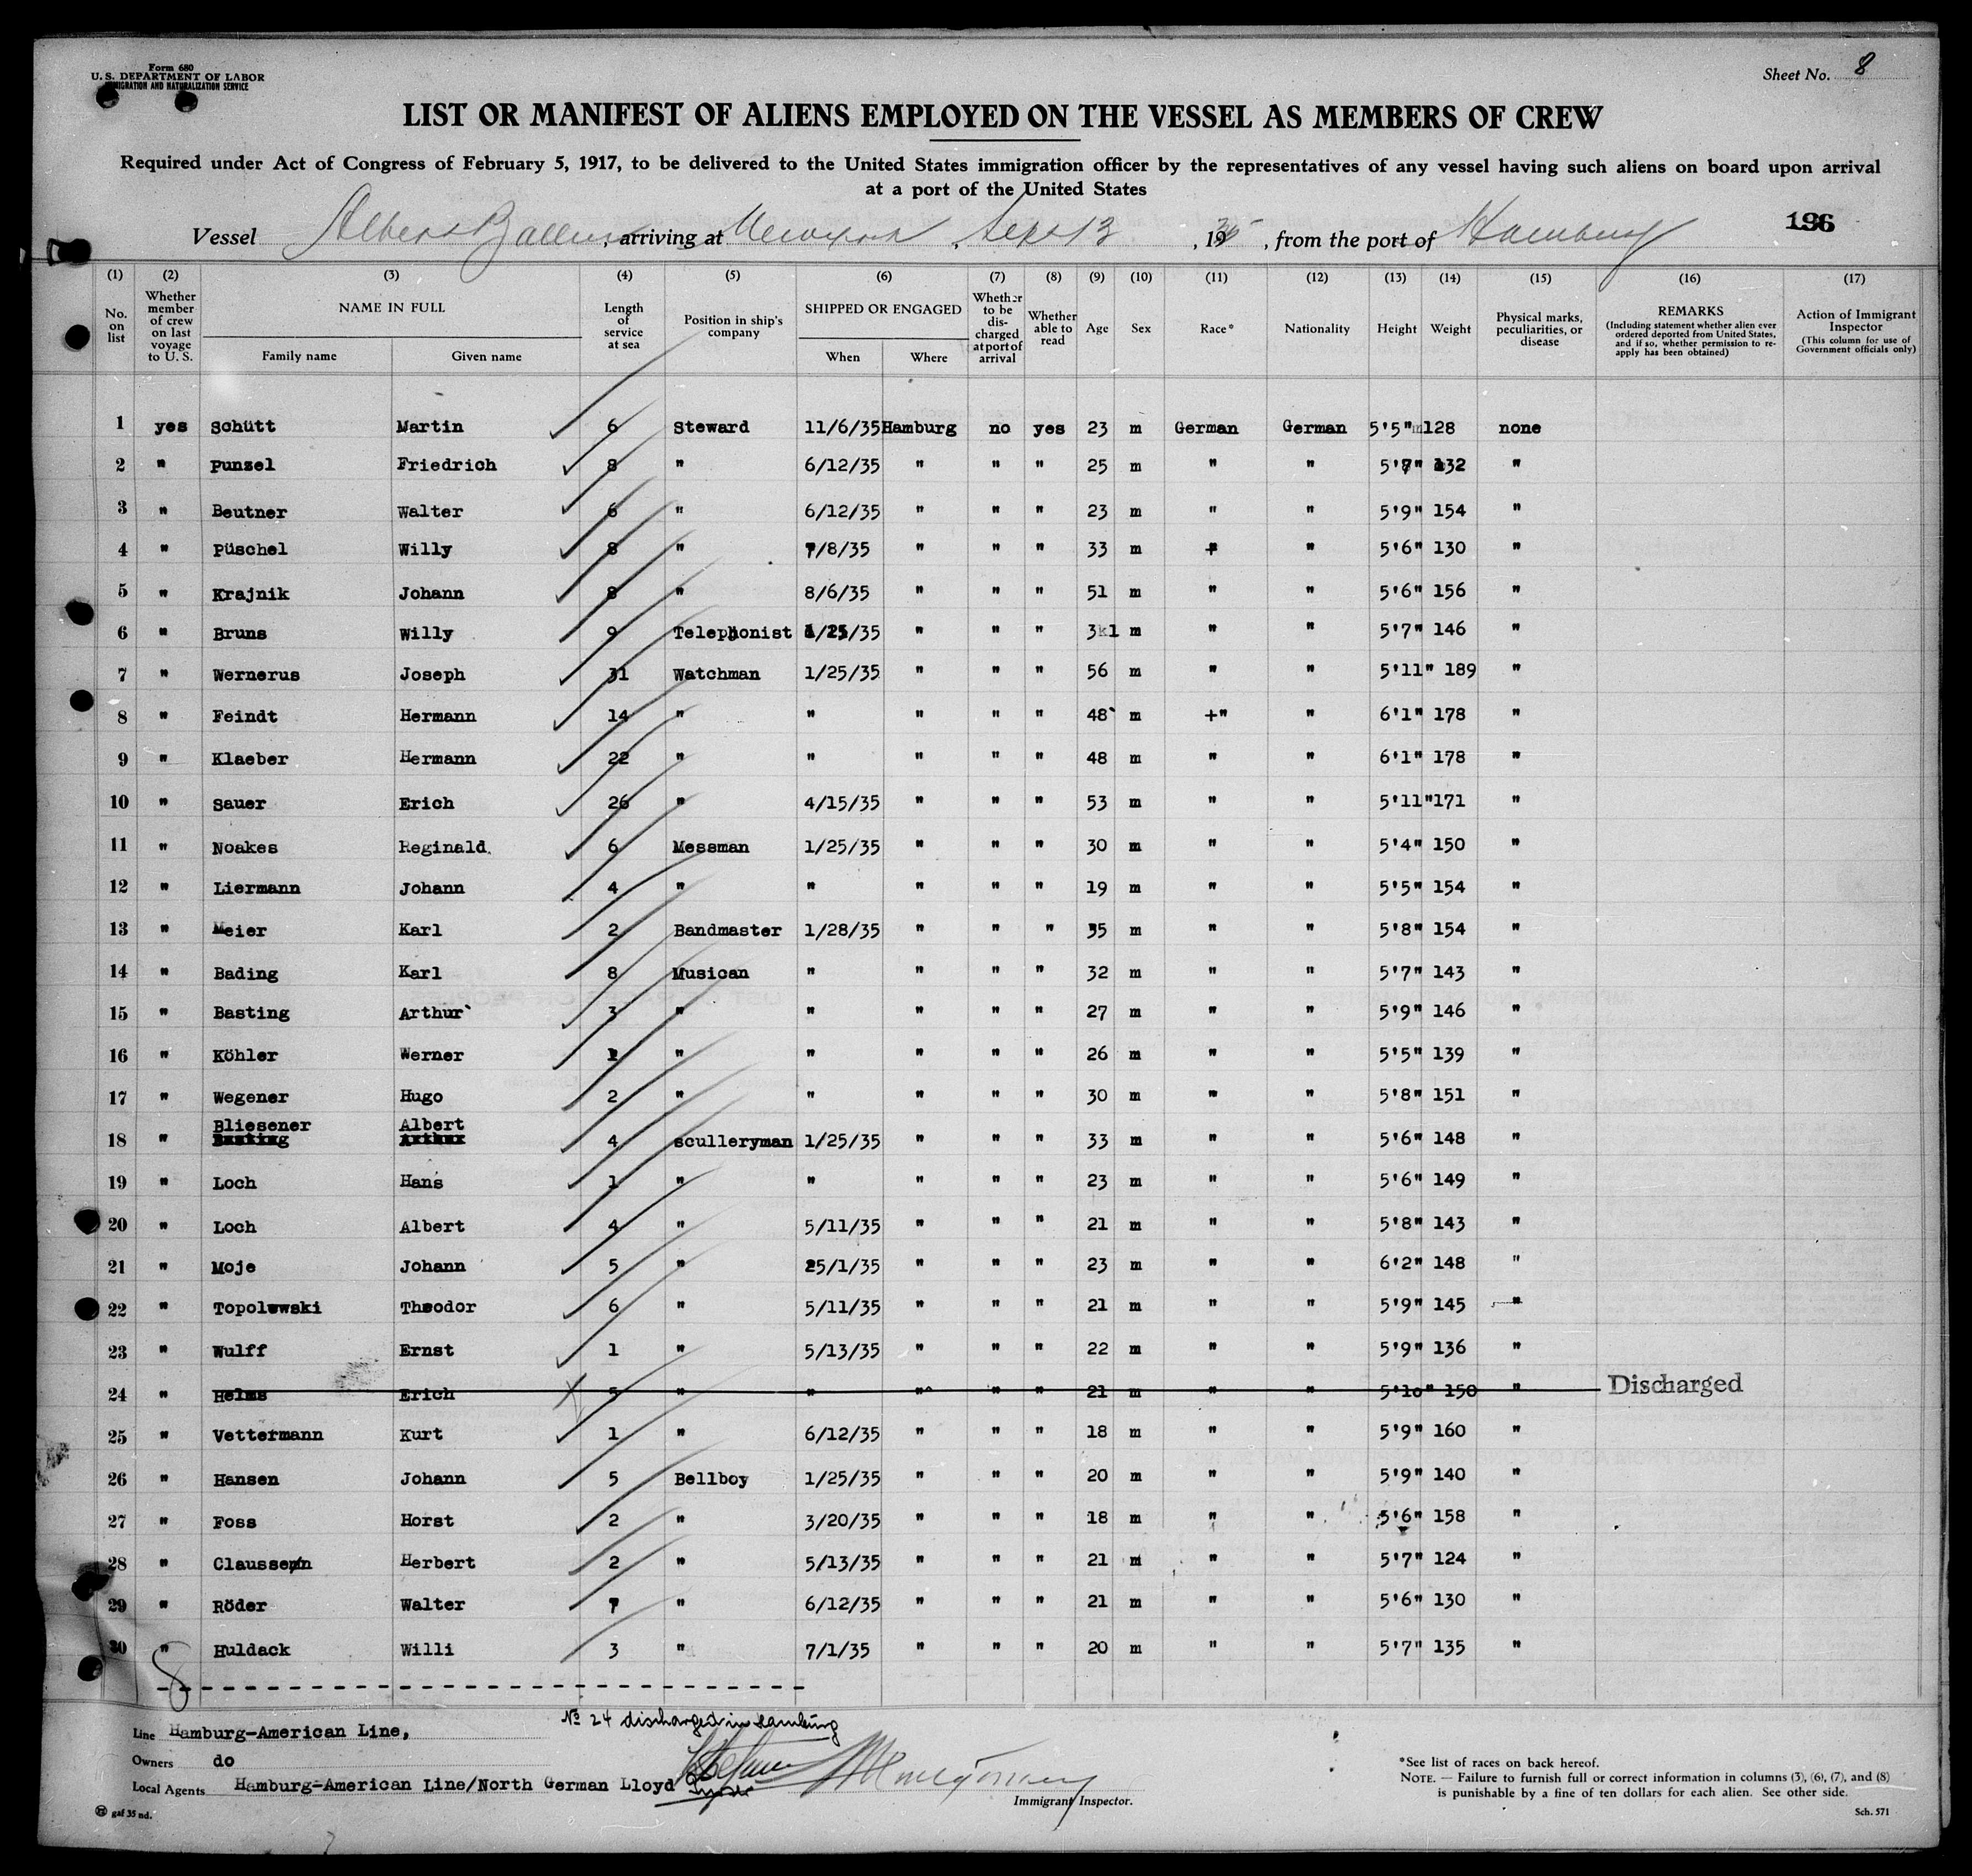 Form 680
U. S. DEPARTMENT OF LABOR
IMMIGRATION AND NATURALIZATION SERVICE
Sheet No. 8
LIST OR MANIFEST OF ALIENS EMPLOYED ON THE VESSEL AS MEMBERS OF CREW
Required under Act of Congress of February 5, 1917, to be delivered to the United States immigration officer by the representatives of any vessel having such aliens on board upon arrival
at a port of the United States
Vessel Albert Ballin, arriving at New York, Sept 13, 1935, from the port of Hamburg
136
(1) (2) (3) (4) (5) (6) (7) (8) (9) (10) (11) (12) (13) (14) (15) (16) (17)
No. on list
Whether member of crew on last voyage to U. S.
NAME IN FULL
Family name
Given name
Length of service at sea
Position in ship's company
SHIPPED OR ENGAGED
When
Where
Whether to be discharged at port of arrival
Whether able to read
Age
Sex
Race*
Nationality
Height
Weight
Physical marks, peculiarities, or disease
REMARKS
(Including statement whether alien ever ordered deported from United States, and if so, whether permission to reapply has been obtained)
Action of Immigrant Inspector
(This column for use of Government officials only)
1 yes Schütt Martin 6 Steward 11/6/35 Hamburg no yes 23 m German German 5'5" 128 none
2 " Punzel Friedrich 8 " 6/12/35 " " " 25 m " " 5'7" 132 "
3 " Beutner Walter 6 " 6/12/35 " " " 23 m " " 5'9" 154 "
4 " Püschel Willy 8 " 7/8/35 " " " 33 m " " 5'6" 130 "
5 " Krajnik Johann 8 " 8/6/35 " " " 51 m " " 5'6" 156 "
6 " Bruns Willy 9 Telephonist 1/25/35 " " " 31 m " " 5'7" 146 "
7 " Wernerus Joseph 31 Watchman 1/25/35 " " " 56 m " " 5'11" 189 "
8 " Feindt Hermann 14 " " " " " 48 m +" " 6'1" 178 "
9 " Klaeber Hermann 22 " " " " " 48 m " " 6'1" 178 "
10 " Sauer Erich 26 " 4/15/35 " " " 53 m " " 5'11" 171 "
11 " Noakes Reginald. 6 Messman 1/25/35 " " " 30 m " " 5'4" 150 "
12 " Liermann Johann 4 " " " " " 19 m " " 5'5" 154 "
13 " Meier Karl 2 Bandmaster 1/28/35 " " " 35 m " " 5'8" 154 "
14 " Bading Karl 8 Musican " " " " 32 m " " 5'7" 143 "
15 " Basting Arthur 3 " " " " " 27 m " " 5'9" 146 "
16 " Köhler Werner " " " " " 26 m " " 5'5" 139 "
17 " Wegener Hugo 2 " " " " " 30 m " " 5'8" 151 "
18 " Bliesener Albert Basting Arthur 4 sculleryman 1/25/35 " " " 33 m " " 5'6" 148 "
19 " Loch Hans 1 " " " " " 23 m " " 5'6" 149 "
20 " Loch Albert 4 " 5/11/35 " " " 21 m " " 5'8" 143 "
21 " Moje Johann 5 " 25/1/35 " " " 23 m " " 6'2" 148 "
22 " Topolewski Theodor 6 " 5/11/35 " " " 21 m " " 5'9" 145 "
23 " Wulff Ernst 1 " 5/13/35 " " " 22 m " " 5'9" 136 "
24 " Helms Erich 5 " " " " " 21 m " " 5'10" 150 " Discharged
25 " Vettermann Kurt 1 " 6/12/35 " " " 18 m " " 5'9" 160 "
26 " Hansen Johann 5 Bellboy 1/25/35 " " " 20 m " " 5'9" 140 "
27 " Foss Horst 2 " 3/20/35 " " " 18 m " " 5'6" 158 "
28 " Claussen Herbert 2 " 5/13/35 " " " 21 m " " 5'7" 124 "
29 " Röder Walter 7 " 6/12/35 " " " 21 m " " 5'6" 130 "
30 " Huldack Willi 3 " 7/1/35 " " " 20 m " " 5'7" 135 "
8
No 24 discharged in Hamburg
Line Hamburg-American Line,
Owners do
Local Agents Hamburg-American Line/North German Lloyd
Montgomery
Immigrant Inspector.
*See list of races on back hereof.
NOTE. — Failure to furnish full or correct information in columns (3), (6), (7), and (8)
is punishable by a fine of ten dollars for each alien. See other side.
gaf 35 nd.
Sch. 571